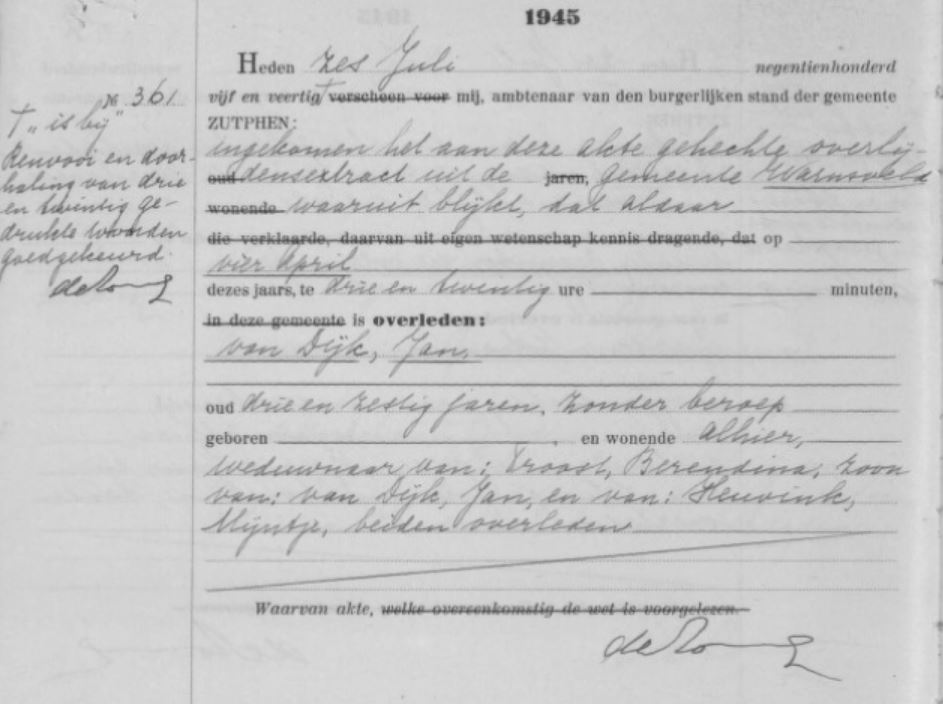 1945
Heden zes Juli negentienhonderd
№ 361
vijf en veertig / verscheen voor mij, ambtenaar van den burgerlijken stand der gemeente
ZUTPHEN:
† „is bij”
Renvooi en door-
haling van drie
en twintig ge-
drukte woorden
goedgekeurd.
ingekomen het aan deze akte gehechte overlij-
oud densextract uit de jaren, gemeente Warnsveld
wonende waaruit blijkt, dat aldaar
die verklaarde, daarvan uit eigen wetenschap kennis dragende, dat op
vier April
dezes jaars, te drie en twintig ure minuten,
in deze gemeente is overleden:
van Dijk, Jan.
oud drie en zestig jaren, zonder beroep
geboren , en wonende alhier,
weduwnaar van: Troost, Berendina, zoon
van: van Dijk, Jan, en van: Heuvink,
Mijntje, beiden overleden
Waarvan akte, welke overeenkomstig de wet is voorgelezen.